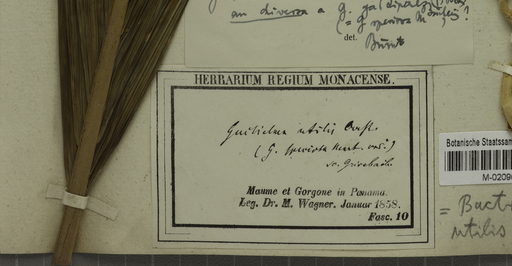 an diversa a G.
= G. speciosa M
det. Burret
HERBARIUM REGIUM MONACENSE.
Guilielma utilis Oerst.
(G. speciosa Mart. var.)
sec. Grisebach.
Maume et Gorgone in Panama.
Leg. Dr. M. Wagner. Januar 1858.
Fasc. 10
Botanische Staatssam
M-0209
= Bactr
utilis